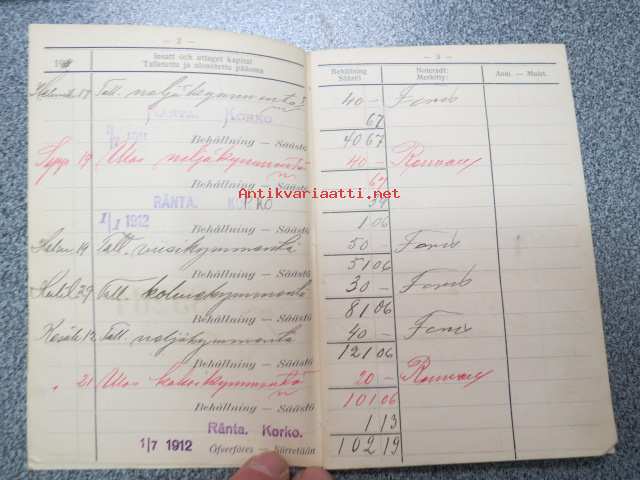 — 2 —
— 3 —
191
Insatt och uttaget kapital
Talletettu ja ulosotettu pääoma
Behållning
Säästö
Noteradt:
Merkitty:
Anm. — Muist.
17 Tall. neljäkymmentä 40 —
RÄNTA. KORKO 67
Behållning — Säästö 40 67
Syys 19 Ulos neljäkymmentä 40 —
Behållning — Säästö 67
RÄNTA. KORKO 39
1/1 1912
Behållning — Säästö 1 06
Helm 14 Tall. viisikymmentä 50 —
Behållning — Säästö 51 06
Huhti 29 Tall. kolmekymmentä 30 —
Behållning — Säästö 81 06
Kesäk 12 Tall. neljäkymmentä 40 —
Behållning — Säästö 121 06
" 21 Ulos kaksikymmentä 20 —
Behållning — Säästö 101 06
Ränta. Korko. 1 13
1/7 1912
Öfverföres — Siirretään 102 19
Antikvariaatti.net